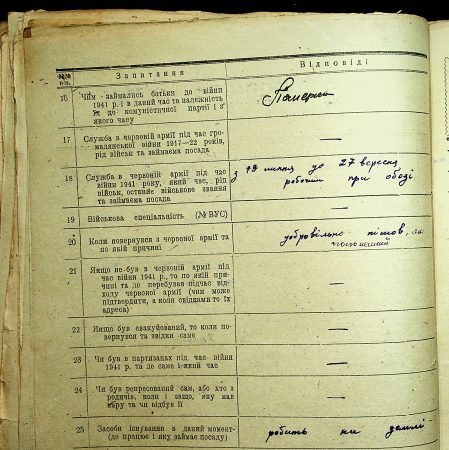 №№ п-п. Запитання Відповіді
16 Чим займались батьки до війни
1941 р. і в даний час та належність
їх до комуністичної партії і з
якого часу
Померли
17 Служба в червоній армії під час гро-
мадянської війни 1917—22 років,
рід військ та займаєма посада
—
18 Служба в червоній армії під час
війни 1941 року, який час, рід
військ, останнє військове звання
та займаєма посада
з 19 липня до 27 вересня
робочим при обозі
19 Військова спеціальність (№ ВУС)
—
20 Коли повернувся з червоної армії та
по якій причині
добровільно пішов, як
21 Якщо не був в червоній армії під
час війни 1941 р., то по якій при-
чині та де перебував підчас від-
ходу червоної армії (чим може
підтвердити, а коли свідками то їх
адреса)
—
22 Якщо був евакуйований, то коли по-
вернувся та звідки саме
—
23 Чи був в партизанах під час війни
1941 р. та де саме і який час
—
24 Чи був репресований сам, або хто з
родичів, коли і защо, яку мав
кару та чи відбув її
—
25 Засоби існування в даний момент
(де працює і яку займає посаду)
робить на землі